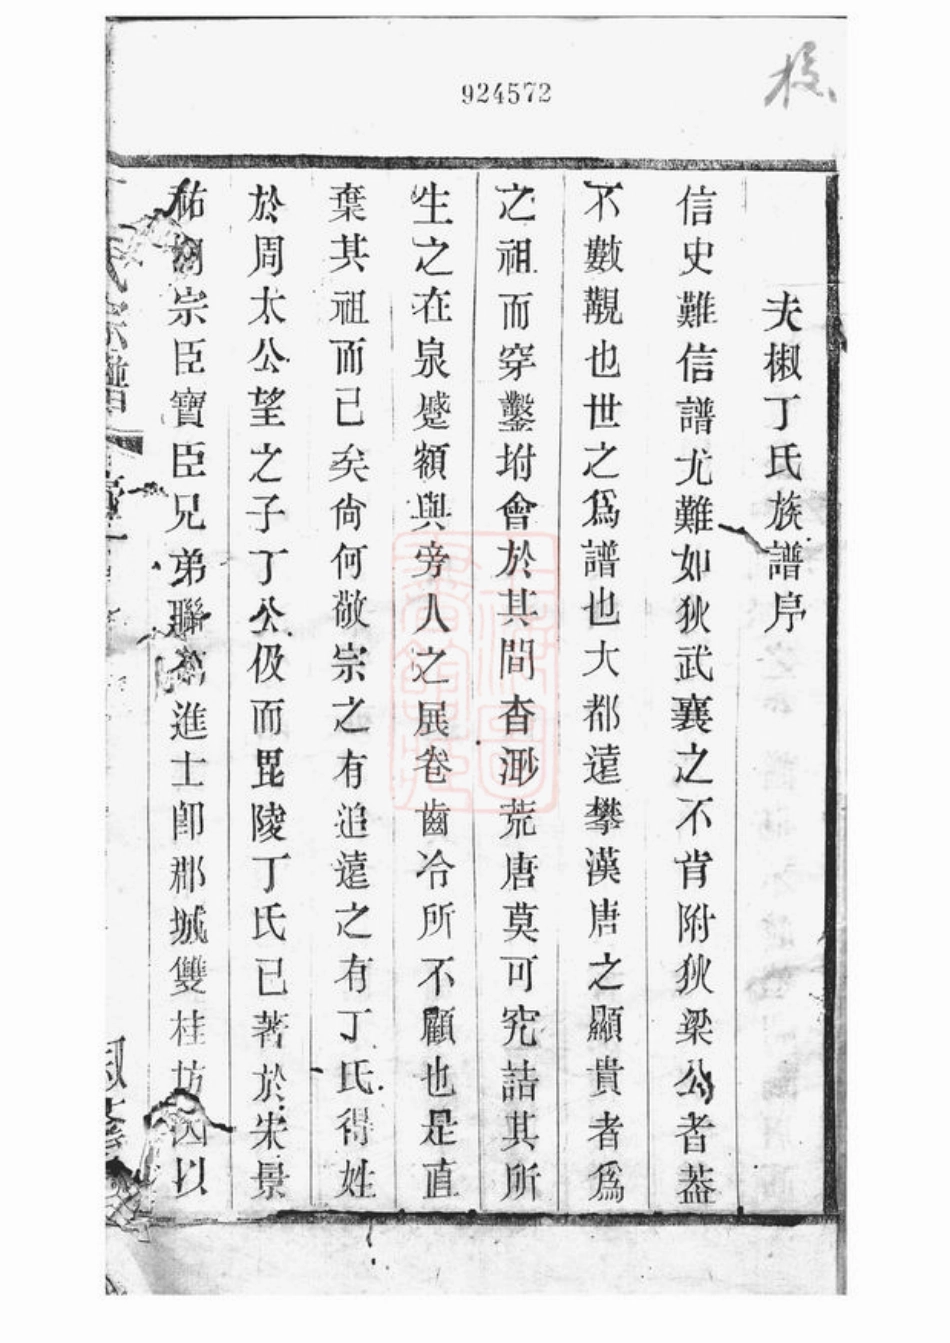 924572
夫椒丁氏族譜序
信史難信譜尤難如狄武襄之不肯附狄梁公者葢
不數覯也世之爲譜也大都遠攀漢唐之顯貴者爲
之祖而穿鑿坿會於其間杳渺荒唐莫可究詰其所
生之在泉蹙額與旁人之展卷齒冷所不顧也是直
棄其祖而已矣尙何敬宗之有追遠之有丁氏得姓
於周太公望之子丁公伋而毘陵丁氏已著於宋景
祐 宗臣寶臣兄弟聯 進士卽郡城雙桂坊 以
氏宗譜